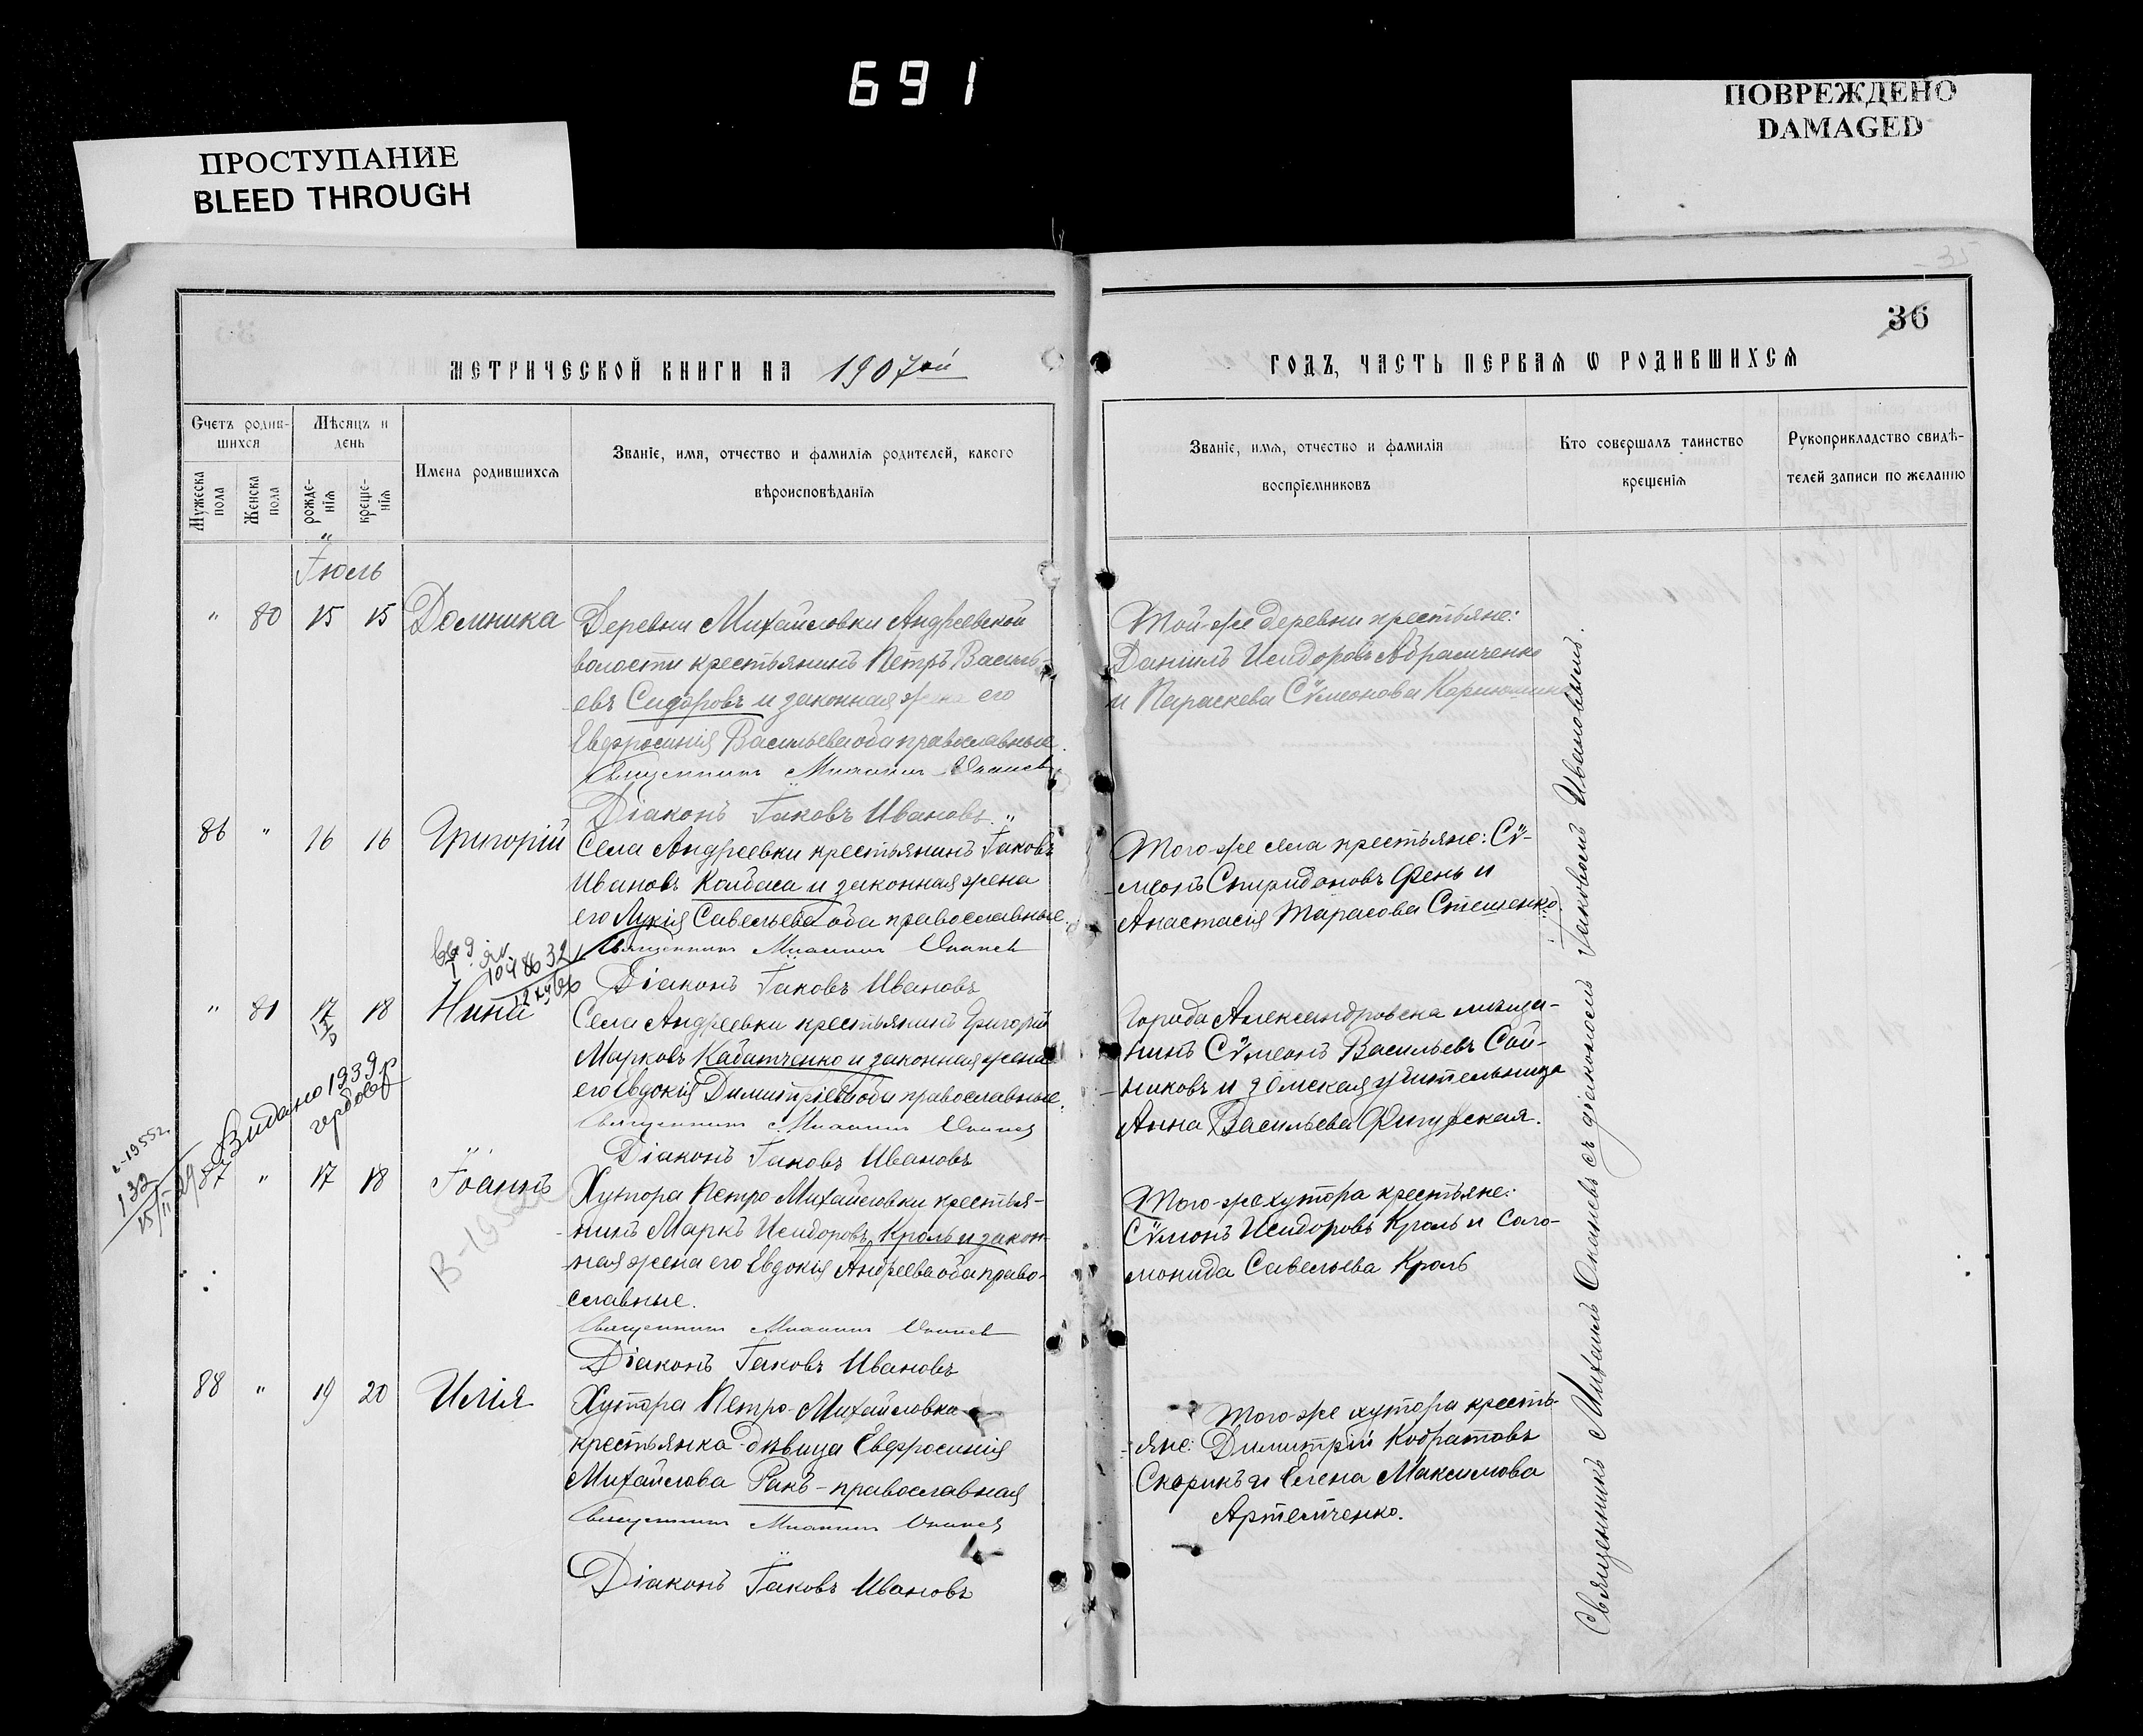 691
ПРОСТУПАНИЕ
BLEED THROUGH
ПОВРЕЖДЕНО
DAMAGED
35
36
МЕТРИЧЕСКОЙ КНИГИ НА 1907ой
ГОДЪ, ЧАСТЬ ПЕРВАЯ Ѡ РОДИВШИХСЯ
Счетъ родив-
шихся
Мѣсяцъ и
день
Мужеска
пола
Женска
пола
рожде-
нія
креще-
нія
Имена родившихся
Званіе, имя, отчество и фамилія родителей, какого
вѣроисповѣданія
Званіе, имя, отчество и фамилія
воспріемниковъ
Кто совершалъ таинство
крещенія
Рукоприкладство свидѣ-
телей записи по желанію
Іюль
" 80 15 15 Домника
Деревни Михайловки Андреевской
волости крестьянинъ Петръ Василь-
евъ Сидоровъ и законная жена его
Евфросинія Васильева оба православные.
Священникъ Михаилъ Оканевъ
Діаконъ Іаковъ Ивановъ
Той-же деревни крестьяне:
Даніилъ Исидоровъ Абрамченко
и Параскева Сѵмеонова
86 " 16 16 Григорій
Села Андреевки крестьянинъ Іаковъ
Ивановъ Колбаса и законная жена
его Лукія Савельева оба православные.
Священникъ Михаилъ Оканевъ
Діаконъ Іаковъ Ивановъ
Того-же села крестьяне: Сѵ-
меонъ Спиридоновъ Фень и
Анастасія Тарасова Стешенко.
" 81 17 18 Нина
Села Андреевки крестьянинъ Григорій
Марковъ Кабатченко и законная жена
его Евдокія Димитріева оба православные.
Священникъ Михаилъ Оканевъ
Діаконъ Іаковъ Ивановъ
Города Александровска мѣща-
нинъ Сѵмеонъ Васильевъ Сой-
никовъ и земская учительница
Анна Васильева Фигурская.
Видано 1939 р
1955г.
132
15/II
87 " 17 18 Іоаннъ
В-195
Хутора Петро-Михайловки крестья-
нинъ Маркъ Исидоровъ Кроль и закон-
ная жена его Евдокія Андреева оба право-
славные.
Священникъ Михаилъ Оканевъ
Діаконъ Іаковъ Ивановъ
Того-же хутора крестьяне:
Сѵмеонъ Исидоровъ Кроль и Соло-
монида Савельева Кроль
88 " 19 20 Илія
Хутора Петро-Михайловки
крестьянка-дѣвица Евфросинія
Михайлова Ракъ-православная
Священникъ Михаилъ Оканевъ
Діаконъ Іаковъ Ивановъ
Того-же хутора кресть-
яне: Димитрій Кодратовъ
Скорикъ и Елена Максимова
Артемченко.
Священникъ Михаилъ Оканевъ съ діакономъ Іаковомъ Ивановымъ.